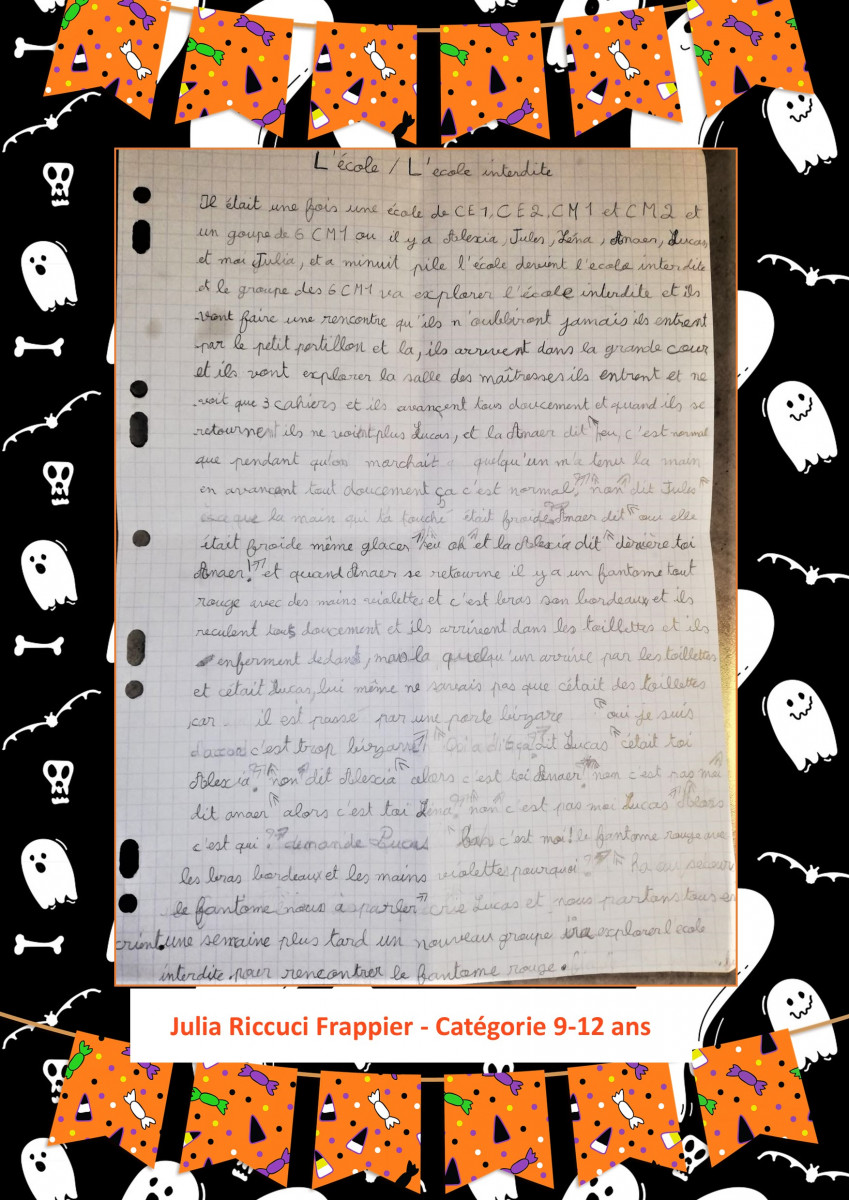 L'école / L'ecole interdite
Il était une fois une école de CE1, CE2, CM1 et CM2 et
un goupe de 6 CM1 ou il y a Alexia, Jules, Léna, Anaer, Lucas
et moi Julia, et a minuit pile l'école devient l'ecole interdite
et le groupe des 6 CM1 va explorer l'école interdite et ils
vont faire une rencontre qu'ils n'oubliront jamais ils entrent
par le petit portillon et la, ils arrivent dans la grande cour
et ils vont explorer la salle des maîtresses ils entrent et ne
voit que 3 cahiers et ils avançent tous doucement et quand ils se
retournent ils ne voient plus Lucas, et la Anaer dit " c'est normal
que pendant qu'on marchait quelqu'un m'a tenu la main
en avançant tout doucement ça c'est normal," "non" dit Jules "
que la main qui t'a touché était froide" Anaer dit " oui elle
était froide même glacer" " oh" et la Alexia dit "dérière toi
Anaer!" et quand Anaer se retourne il y a un fantome tout
rouge avec des mains violettes et c'est bras son bordeaux, et ils
reculent tous doucement et ils arrivent dans les toillettes et ils
enferment dedans, mais la quelqu'un arrive par les toillettes
et cétait Lucas, lui même ne savais pas que cétait des toillettes
car il est passé par une porte bizare "oui je suis
d'accord c'est trop bizare" dit Lucas "cétait toi
Alexia?" "non" dit Alexia "alors c'est toi Anaer" "non c'est pas moi
dit anaer "alors c'est toi Léna?" "non c'est pas moi Lucas" "Alors
c'est qui?" demande Lucas " c'est moi! le fantome rouge avec
les bras bordeaux et les mains violettes pourquoi?" " secour
le fantome nous à parler" crie Lucas et nous partons tous en
crient. une semaine plus tard un nouveau groupe ira explorer l'ecole
interdite pour rencontrer le fantome rouge.
Julia Riccuci Frappier - Catégorie 9-12 ans